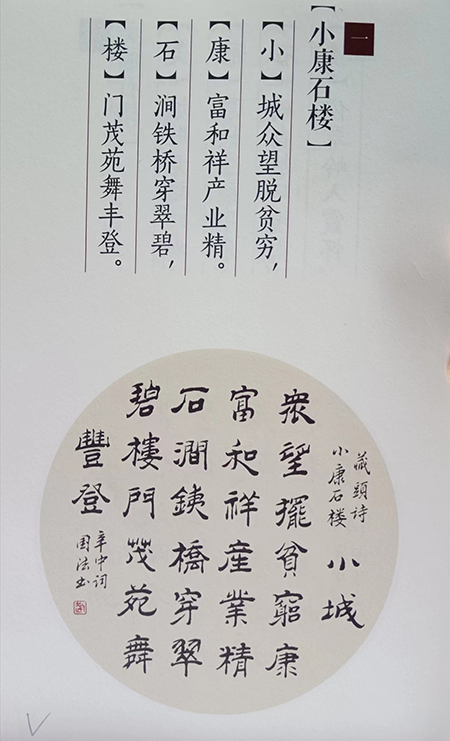 一
【小康石楼】
【小】城众望脱贫穷，
【康】富和祥产业精。
【石】涧铁桥穿翠碧，
【楼】门茂苑舞丰登。
藏頭詩
小康石楼
小城
衆望擺貧窮康
富和祥産業精
石澗銕橋穿翠
碧樓門茂苑舞
豐登
辛中词
国法书